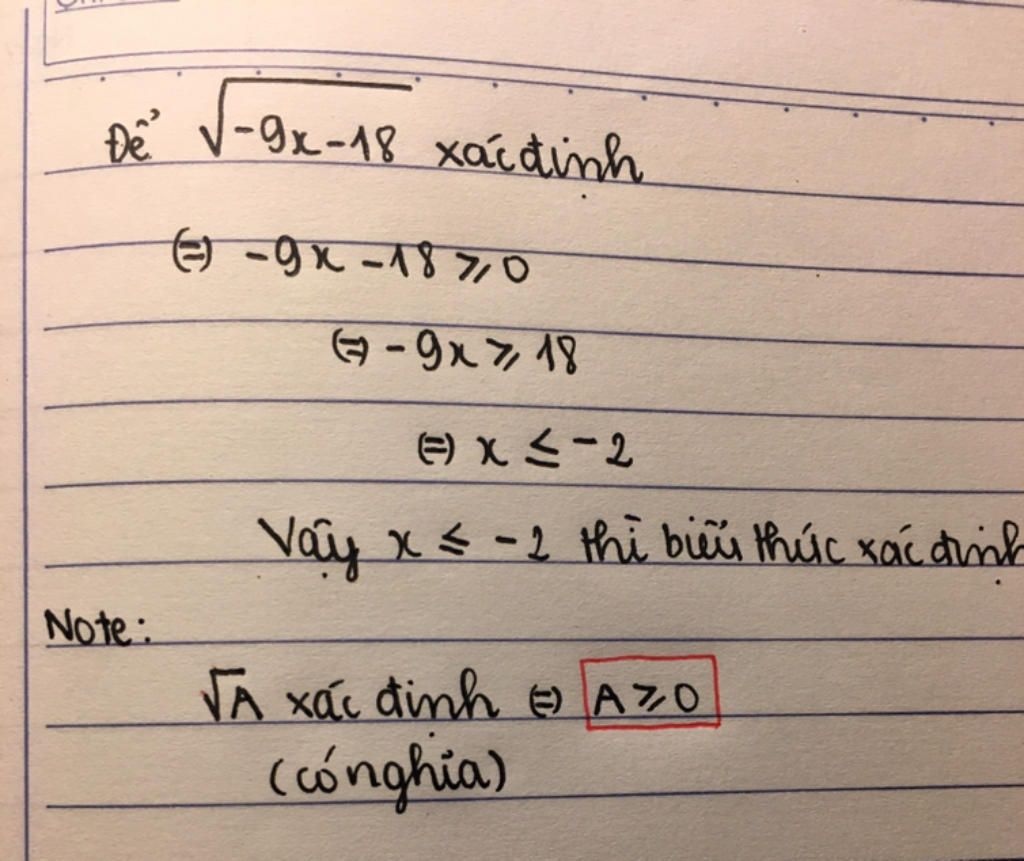 Để √-9x-18 xác định
⇔ -9x -18 ⩾ 0
⇔ -9x ⩾ 18
⇔ x ≤ -2
Vậy x ≤ -2 thì biểu thức xác định
Note:
√A xác định ⇔ A ⩾ 0
(có nghĩa)